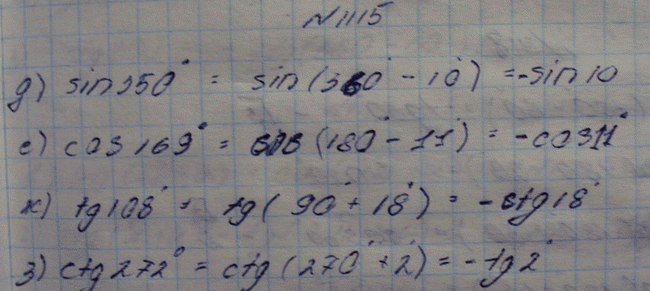 №1115
д) sin350° = sin(360° - 10°) = -sin10
е) cos169° = cos(180° - 11) = -cos11°
ж) tg108° = tg(90° + 18°) = -ctg18°
з) ctg272° = ctg(270° + 2°) = -tg2°